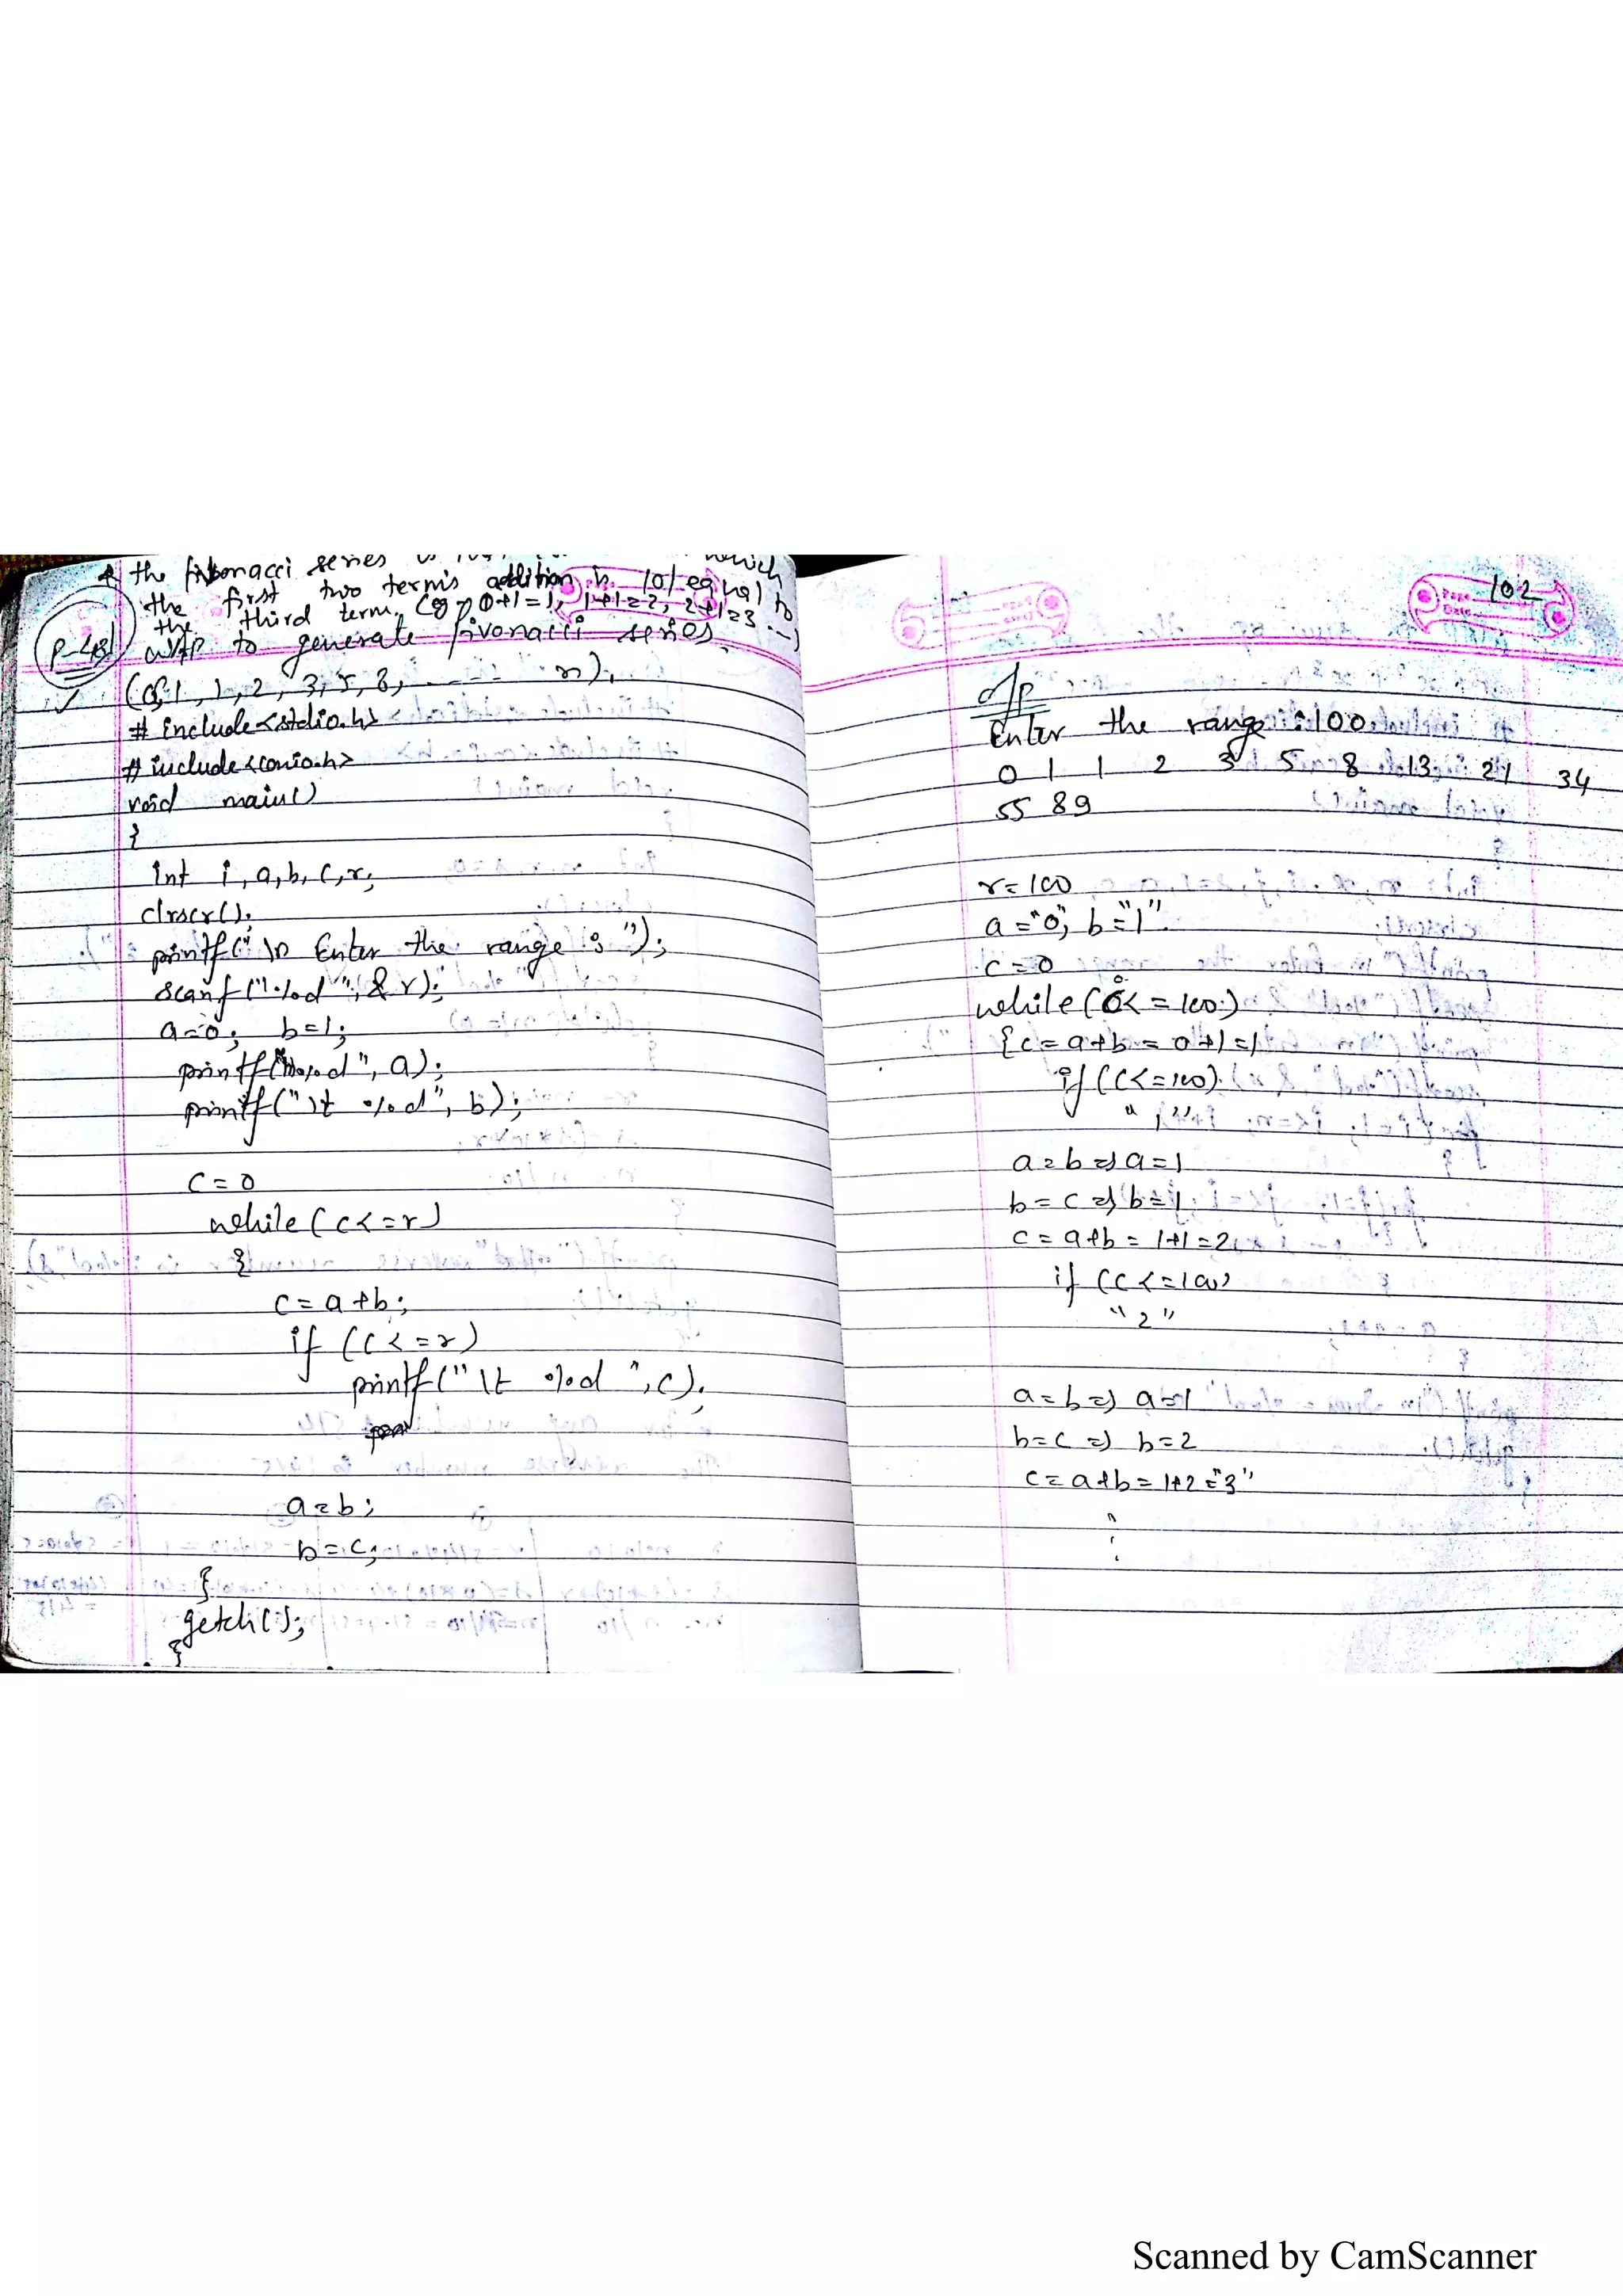 * the fibonacci series is which
the first two term's addition is equal to
the third term. (eg → 0+1=1, 1+1=2, 2+1=3 ...)
P-48 WAP to generate fivonacci series
(0, 1, 1, 2, 3, 5, 8, ...... n).
# include<stdio.h>
# include<conio.h>
void main()
{
int i, a, b, c, r;
clrscr();
printf(" \n Enter the range : ");
scanf("%d", &r);
a=0; b=1;
printf("%d", a);
printf("\t %d", b);
c=0
while (c<=r)
{
c=a+b;
if (c<=r)
printf("\t %d ",c);
a=b;
b=c;
}
getch();
}
102
o/p
Enter the range :100
0 1 1 2 3 5 8 13 21 34
55 89
r=100
a="0"; b="1".
c=0
while (0<=100)
{c=a+b=0+1=1
if (c<=100)
"1"
a=b⇒a=1
b=c⇒b=1
c=a+b=1+1=2
if (c<=100)
"2"
a=b⇒ a=1
b=c ⇒ b=2
c=a+b=1+2="3"
Scanned by CamScanner